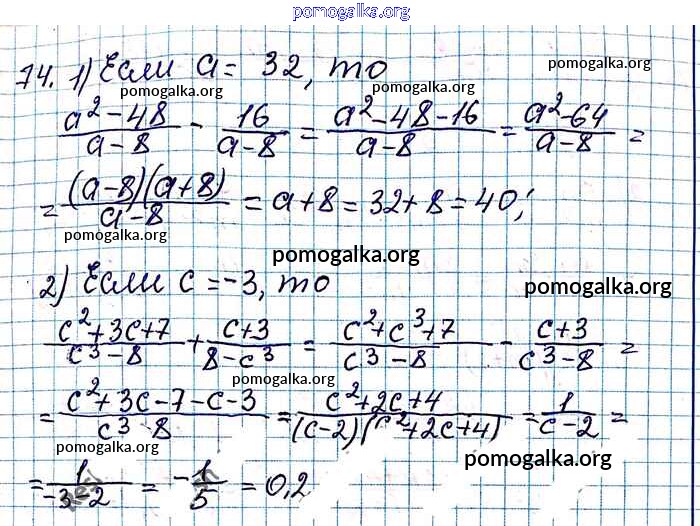 pomogalka.org
74. 1) Если a = 32, то
pomogalka.org pomogalka.org
(a² - 48)/(a - 8) - 16/(a - 8) = (a² - 48 - 16)/(a - 8) = (a² - 64)/(a - 8) =
= ((a-8)(a+8))/(a - 8) = a + 8 = 32 + 8 = 40;
pomogalka.org
pomogalka.org
2) Если c = -3, то
pomogalka.org
(c² + 3c + 7)/(c³ - 8) + (c + 3)/(8 - c³) = (c² + c³ + 7)/(c³ - 8) - (c + 3)/(c³ - 8) =
pomogalka.org
= (c² + 3c - 7 - c - 3)/(c³ 8) = (c² + 2c + 4)/((c - 2)(c² + 2c + 4)) = 1/(c - 2) =
pomogalka.org
pomogalka.org
= 1/(-3 - 2) = -1/5 = 0,2